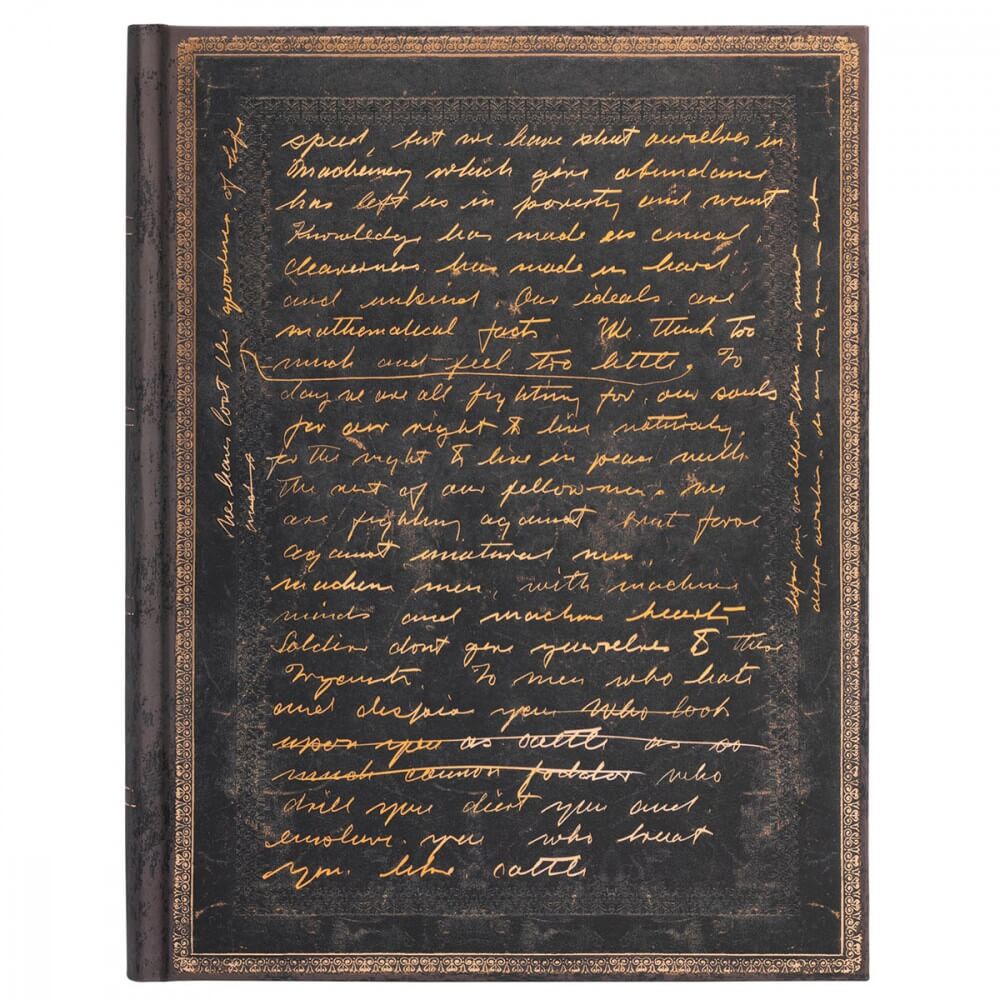 speed, but we have shut ourselves in
Machinery which give abundance
has left us in poverty and want
Knowledge has made us cinical,
cleaverness has made us hard
and unkind. Our ideals are
mathematical facts We think too
much and feel too little. To
day we are all fighting for our souls
for our right to live naturaly
for the right to live in peace with
the rest of our fellow men
are fighting against brut force
against unatural men
machine men, with machine
minds and machine hearts
Soldiers dont give yourselves to these
To men who hate
and despise you Who look
upon you as cattle as so
much cannon fodder who
drill you diert you and
enslave you who treat
you like cattle
We have lost the goodness of life